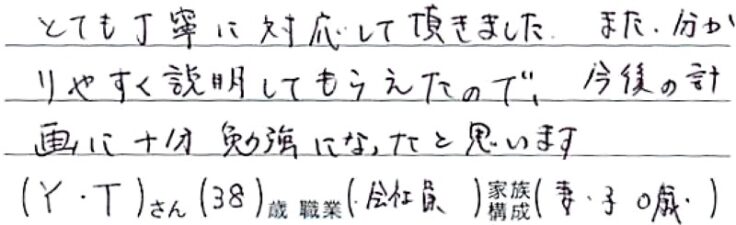 とても丁寧に対応して頂きました. また、分か
りやすく説明してもらえたので、今後の計
画に十分勉強になったと思います
(Y・T)さん(38)歳 職業(会社員)家族構成(妻・子0歳・)